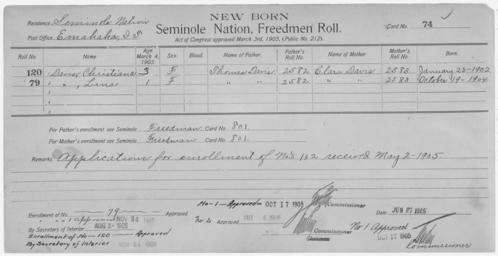 NEW BORN
Residence, Seminole Nation
Seminole Nation, Freedmen Roll.
Card No. 74
Post Office, Emahaka, I.T.
Act of Congress approved March 3rd, 1905, (Public No. 212).
Roll No. Name Age March 4, 1905. Sex Blood. Name of Father. Roll No. Name of Mother Roll No.
120 Davis, Christiana 3 F Thomas Davis 2582 Clara Davis 2583 January 23-1902
79 " , Lena 1 F " " 2582 " " 2583 October 19-1904
For Father's enrollment see Seminole Freedman Card No. 801.
For Mother's enrollment see Seminole Freedman Card No. 801.
Remarks Applications for enrollment of Nos. 1&2 received May 2-1905
Enrollment of No 79 Approved
By Secretary of Interior AUG 2-1905
Enrollment of No 120 Approved
By Secretary of Interior
No-1-Approved OCT 17 1905
Commissioner
Date JUN 27 1905
No 1 Approved
OCT 17 1905
Commissioner